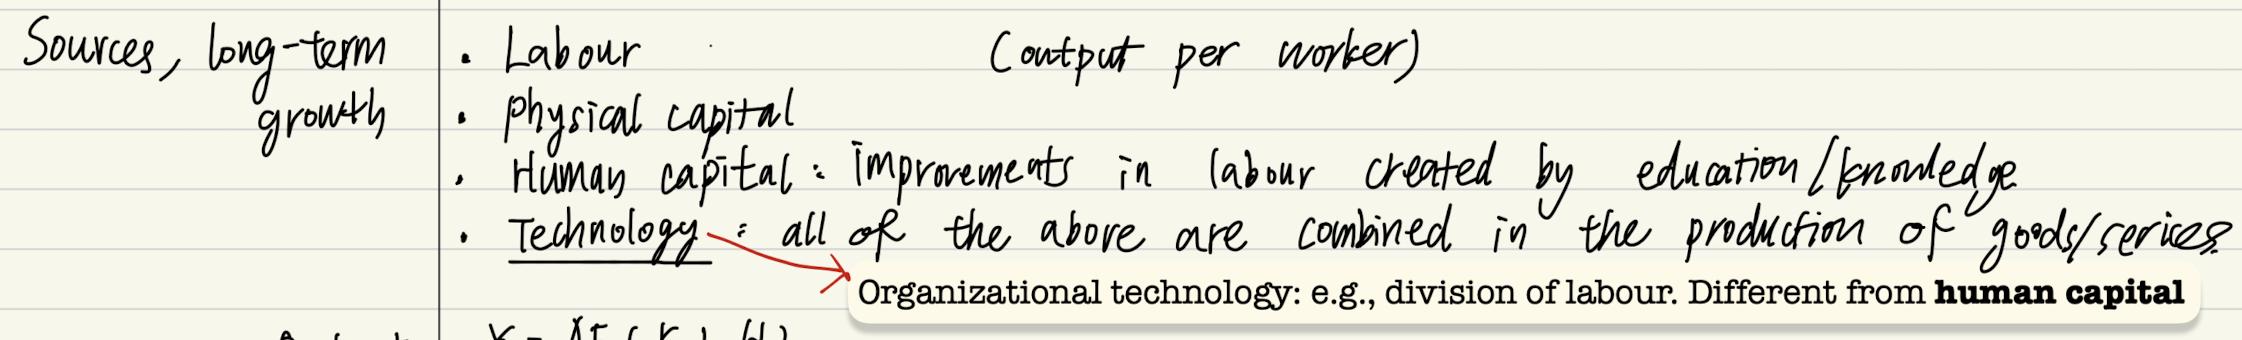 Sources, long-term growth
• Labour (output per worker)
• physical capital
• Human capital : improvements in labour created by education/knowledge
• Technology : all of the above are combined in the production of goods/serices
Organizational technology: e.g., division of labour. Different from human capital